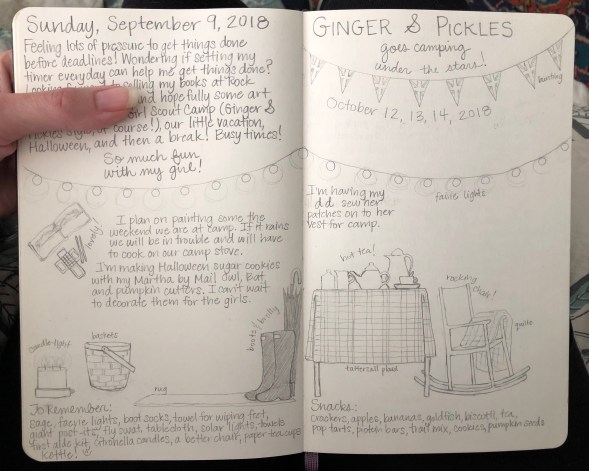 Sunday, September 9, 2018
Feeling lots of pressure to get things done
before deadlines! Wondering if setting my
timer everyday can help me get things done?
selling my books at Rock
and hopefully some art
Girl Scout Camp (Ginger &
Pickles style, of course!), our little vacation,
Halloween, and then a break! Busy times!
So much fun
with my girl!
lovely
I plan on painting some the
weekend we are at camp. If it rains
we will be in trouble and will have
to cook on our camp stove.
I'm making Halloween sugar cookies
with my Martha by Mail Owl, Bat,
and pumpkin cutters. I can't wait
to decorate them for the girls.
candle-light
baskets
rug
boots / brolly
To Remember:
sage, faerie lights, boot socks, towel for wiping feet,
giant post-its, fly swat, tablecloth, solar lights, towels
first aide kit, citronella candles, a better chair, paper tea cups
kettle!
GINGER & PICKLES
goes camping
under the stars!
bunting
October 12, 13, 14, 2018
faerie lights
I'm having my
d.d. sew her
patches on to her
vest for camp.
hot tea!
rocking
chair!
quilts
tattersall plaid
Snacks:
crackers, apples, bananas, goldfish, biscotti, tea,
pop tarts, protein bars, trail mix, cookies, pumpkin seeds